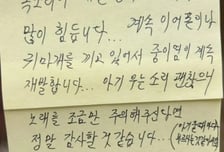 많이 힘듭니다... 계속 이어폰이나
귀마개를 끼고 있어서 중이염이 계속
재발합니다... 아기 우는 소리 괜찮으니
노래를 조금만 주의해주신다면
정말 감사할 것 같습니다...